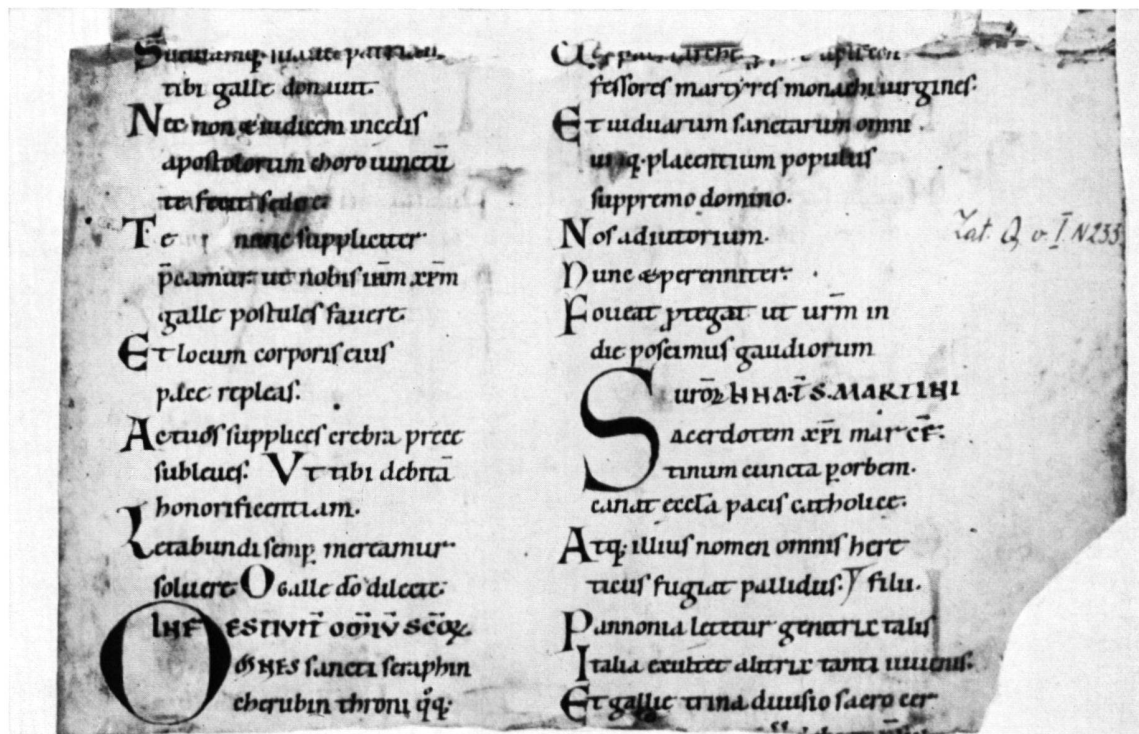 tibi galle donauit.
Nec non & iudicem in celis
apostolorum choro iunctū
te fecit sedere
Te nunc suppliciter
p̄camur: ut nobis ih̄m xp̄m
galle postules fauere.
Et locum corporis eius
pace repleas.
Ac tuos supplices crebra prece
subleues. Vt tibi debitā
honorificentiam.
Letabundi semp̱ mereamur
soluere O Galle do̅ dilecte.
IN FESTIVIT̄ OM̄IV̄ SC̄OꝜ
OMNES sancti seraphin
cherubin throni qͦq;
fessores martyres monachi uirgines.
Et uiduarum sanctarum omni
umq. placentium populus
supremo domino.
Nos adiutorium.
Nunc & perenniter.
Foueat ꝓtegat ut ur̄m in
die poscimus gaudiorum
IN NAT̄ S. MARTINI
Sacerdotem xp̄i mar
tinum cuncta p̱ orbem.
canat eccl̄a pacis catholice.
Atq; illius nomen omnis here
ticus fugiat pallidus. filii
Pannonia letetur genitrix talis
Italia exultet alitrix tanti iuuenis.
Et gallie trina diuisio sacro cer
Zat. Q v. I N 233